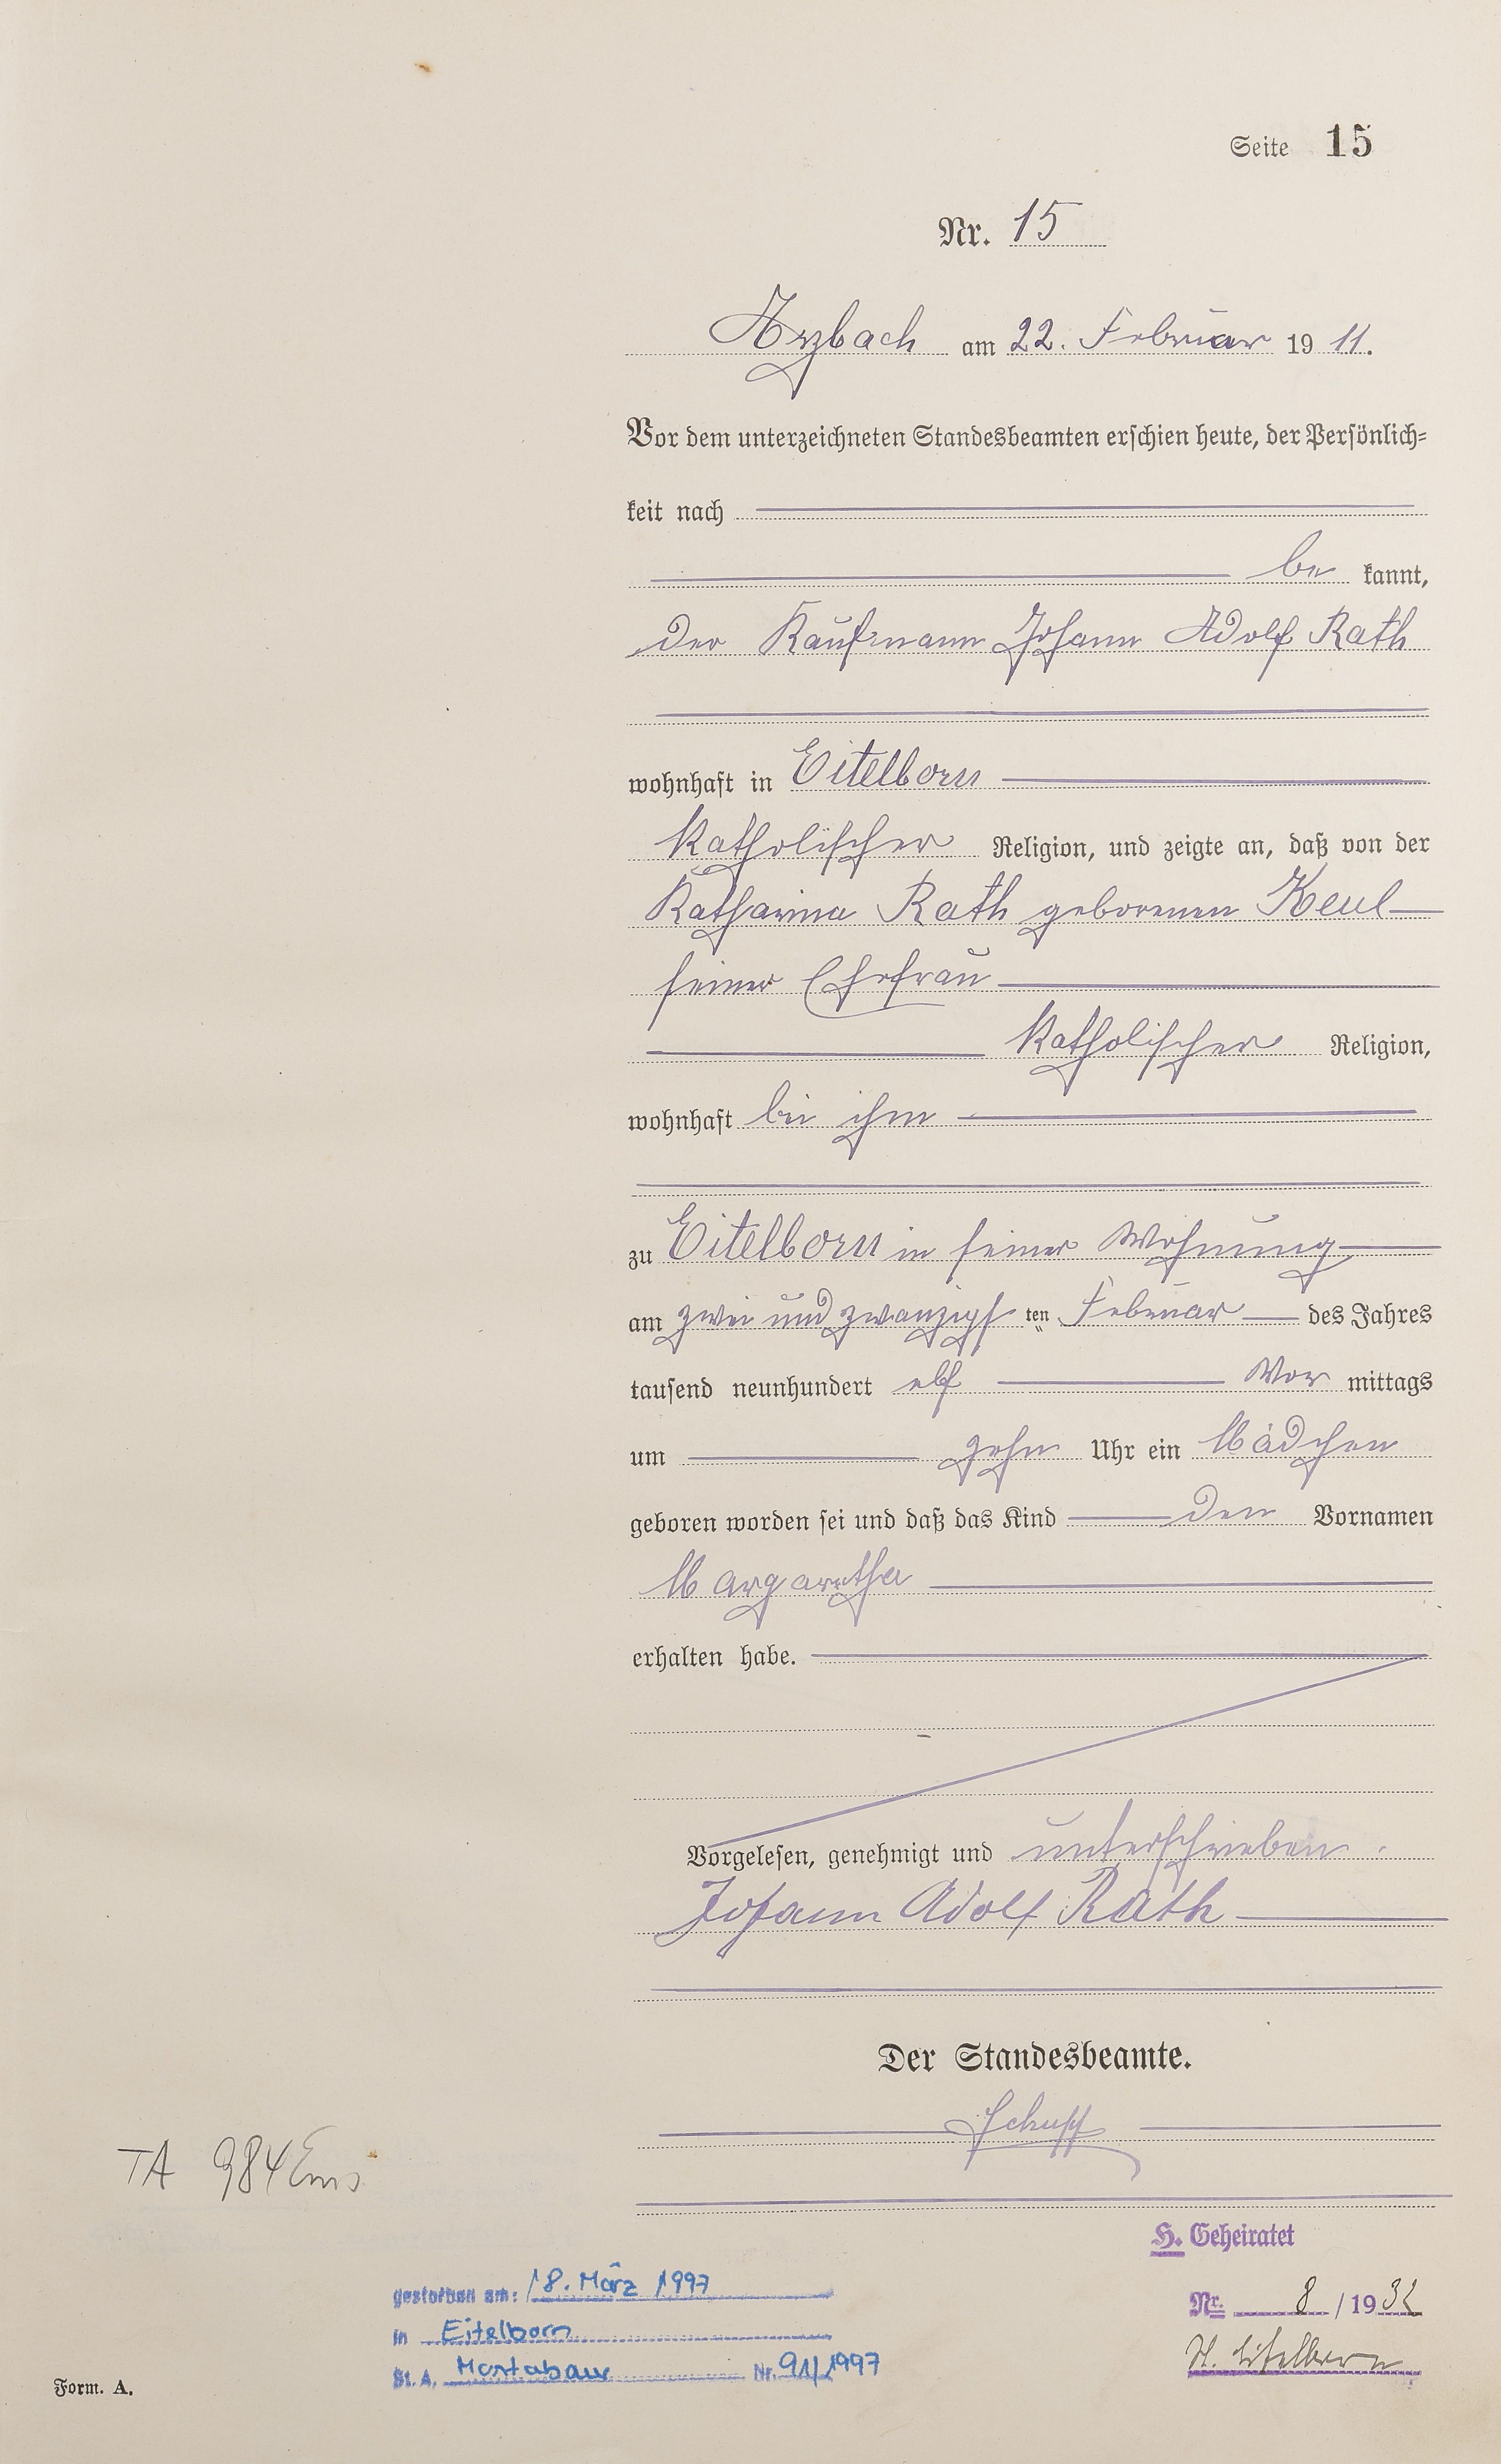 Seite 15
Nr. 15
Arzbach am 22. Februar 19 11.
Vor dem unterzeichneten Standesbeamten erschien heute, der Persönlich-
keit nach
be kannt,
der Kaufmann Johann Adolf Rath
wohnhaft in Eitelborn
katholischer Religion, und zeigte an, daß von der
Katharina Rath geborenen Keul
seiner Ehefrau
katholischer Religion,
wohnhaft bei ihm
zu Eitelborn in seiner Wohnung
am zwei und zwanzigs ten Februar des Jahres
tausend neunhundert elf Vor mittags
um zehn Uhr ein Mädchen
geboren worden sei und daß das Kind den Vornamen
Margaretha
erhalten habe.
Vorgelesen, genehmigt und unterschrieben.
Johann Adolf Rath
Der Standesbeamte.
Schupp
TA 984 Ems
H. Geheiratet
gestorben am: 18. März 1997
Nr. 8 / 19 32
in Eitelborn
St. A. Eitelborn
St. A. Montabaur Nr. 91/1997
Form. A.